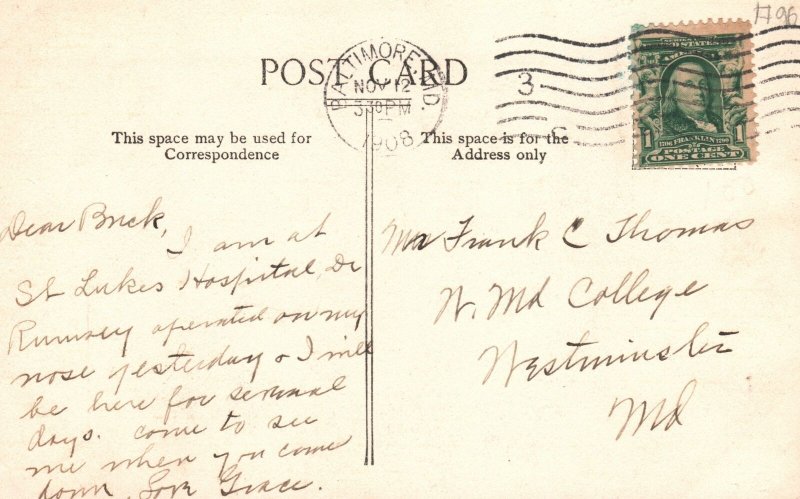 1796
POST CARD
BALTIMORE, MD.
NOV 12
330 PM
1908
3
SERIES 1902
UNITED STATES
1706 FRANKLIN 1790
1 POSTAGE 1
ONE CENT
This space may be used for
Correspondence
This space is for the
Address only
Dear Buck,
I am at
St Lukes Hospital, Dr
Rumsey operated on my
nose yesterday & I will
be here for several
days. come to see
me when you come
down, Love Grace.
Mr Frank C Thomas
W. Md College
Westminster
Md